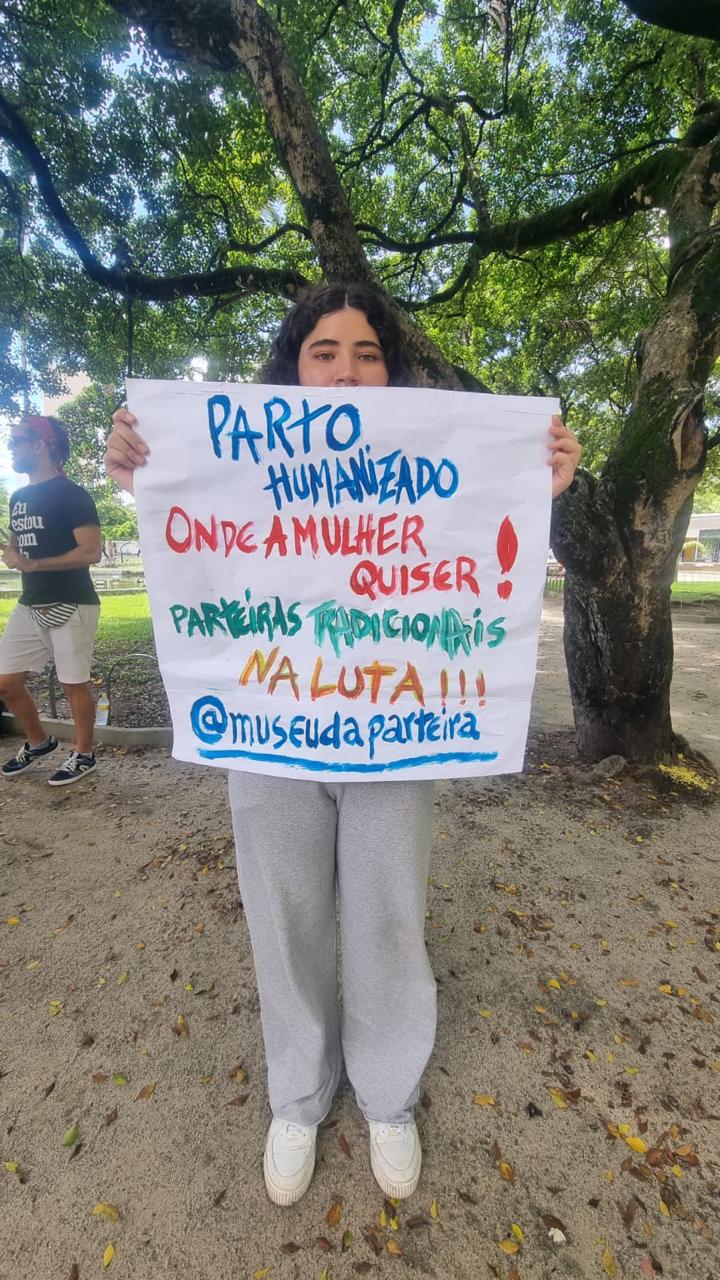 PARTO
HUMANIZADO
ONDE A MULHER
QUISER!
PARTEIRAS TRADICIONAIS
NA LUTA!!!
@museudaparteira
Eu
estou